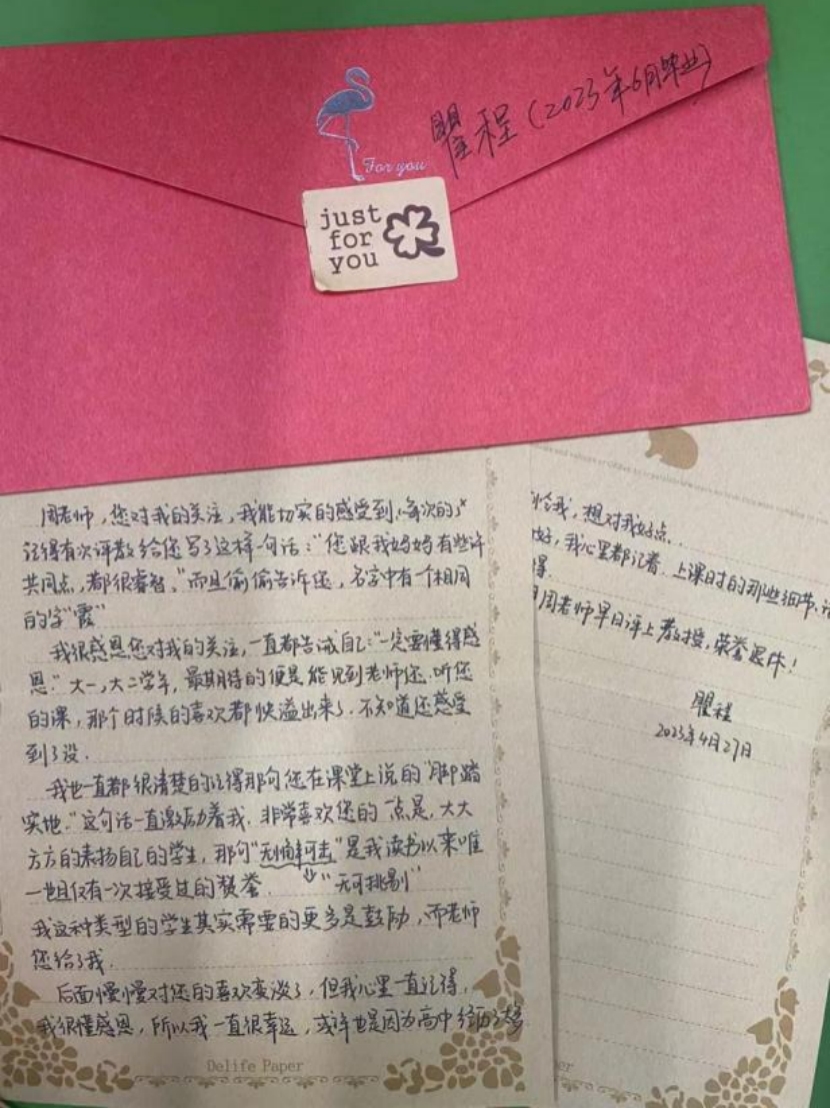 瞿程（2023年6月毕业）
For you
just
for
you
周老师，您对我的关注，我能切实的感受到，每次的
记得有次评教给您写了这样一句话：“您跟我妈妈有些许
共同点，都很睿智。”而且偷偷告诉您，名字中有一个相同
的字“霞”
我很感恩您对我的关注，一直都告诫自己：“一定要懂得感
恩。”大一，大二学年，最期待的便是能见到老师您，听您
的课，那个时候的喜欢都快溢出来了，不知道您感受
到了没．
我也一直都很清楚的记得那句您在课堂上说的“脚踏
实地。”这句话一直激励着我．非常喜欢您的一点是，大大
方方的表扬自己的学生，那句“无懈可击”是我读书以来唯
一也且仅有一次接受过的赞誉．“无可挑剔”
我这种类型的学生其实需要的更多是鼓励，而老师
您给了我．
后面慢慢对您的喜欢变淡了，但我心里一直记得，
我很懂感恩，所以我一直很幸运，或许也是因为高中经历了
Delife Paper
给我，想对我好点．
好，我心里都记着．上课时的那些细节，
得．
周老师早日评上教授，荣誉退休！
瞿程
2023年4月27日
er